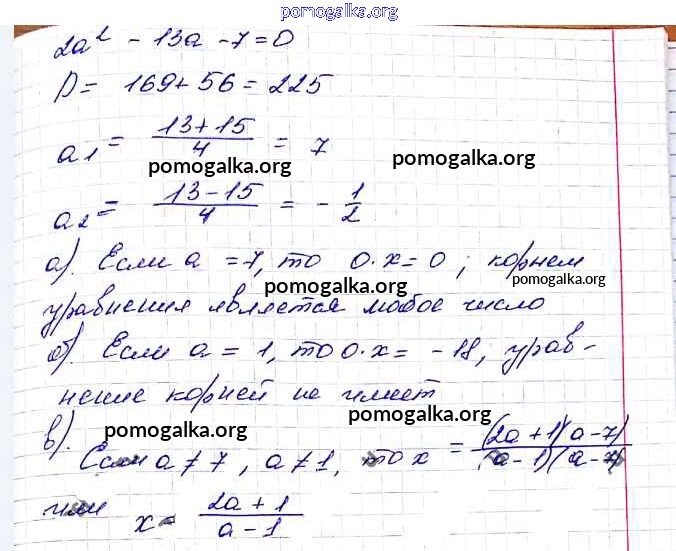 pomogalka.org
2a² - 13a - 7 = 0
D = 169 + 56 = 225
a₁ = (13+15)/4 = 7
pomogalka.org pomogalka.org
a₂ = (13-15)/4 = -1/2
а). Если a = 7, то 0·x = 0; корнем
pomogalka.org pomogalka.org
уравнения является любое число
б). Если a = 1, то 0·x = -18; урав-
нение корней не имеет
pomogalka.org pomogalka.org
в). Если a ≠ 7, a ≠ 1, то x = (2a+1)(a-7)/(a-1)(a-7)
или x = (2a+1)/(a-1)